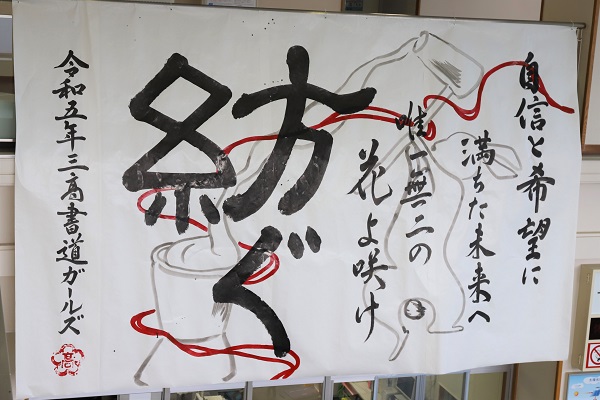 自信と希望に
満ちた未来へ
唯一無二の
花よ咲け
紡ぐ
令和五年三高書道ガールズ
高